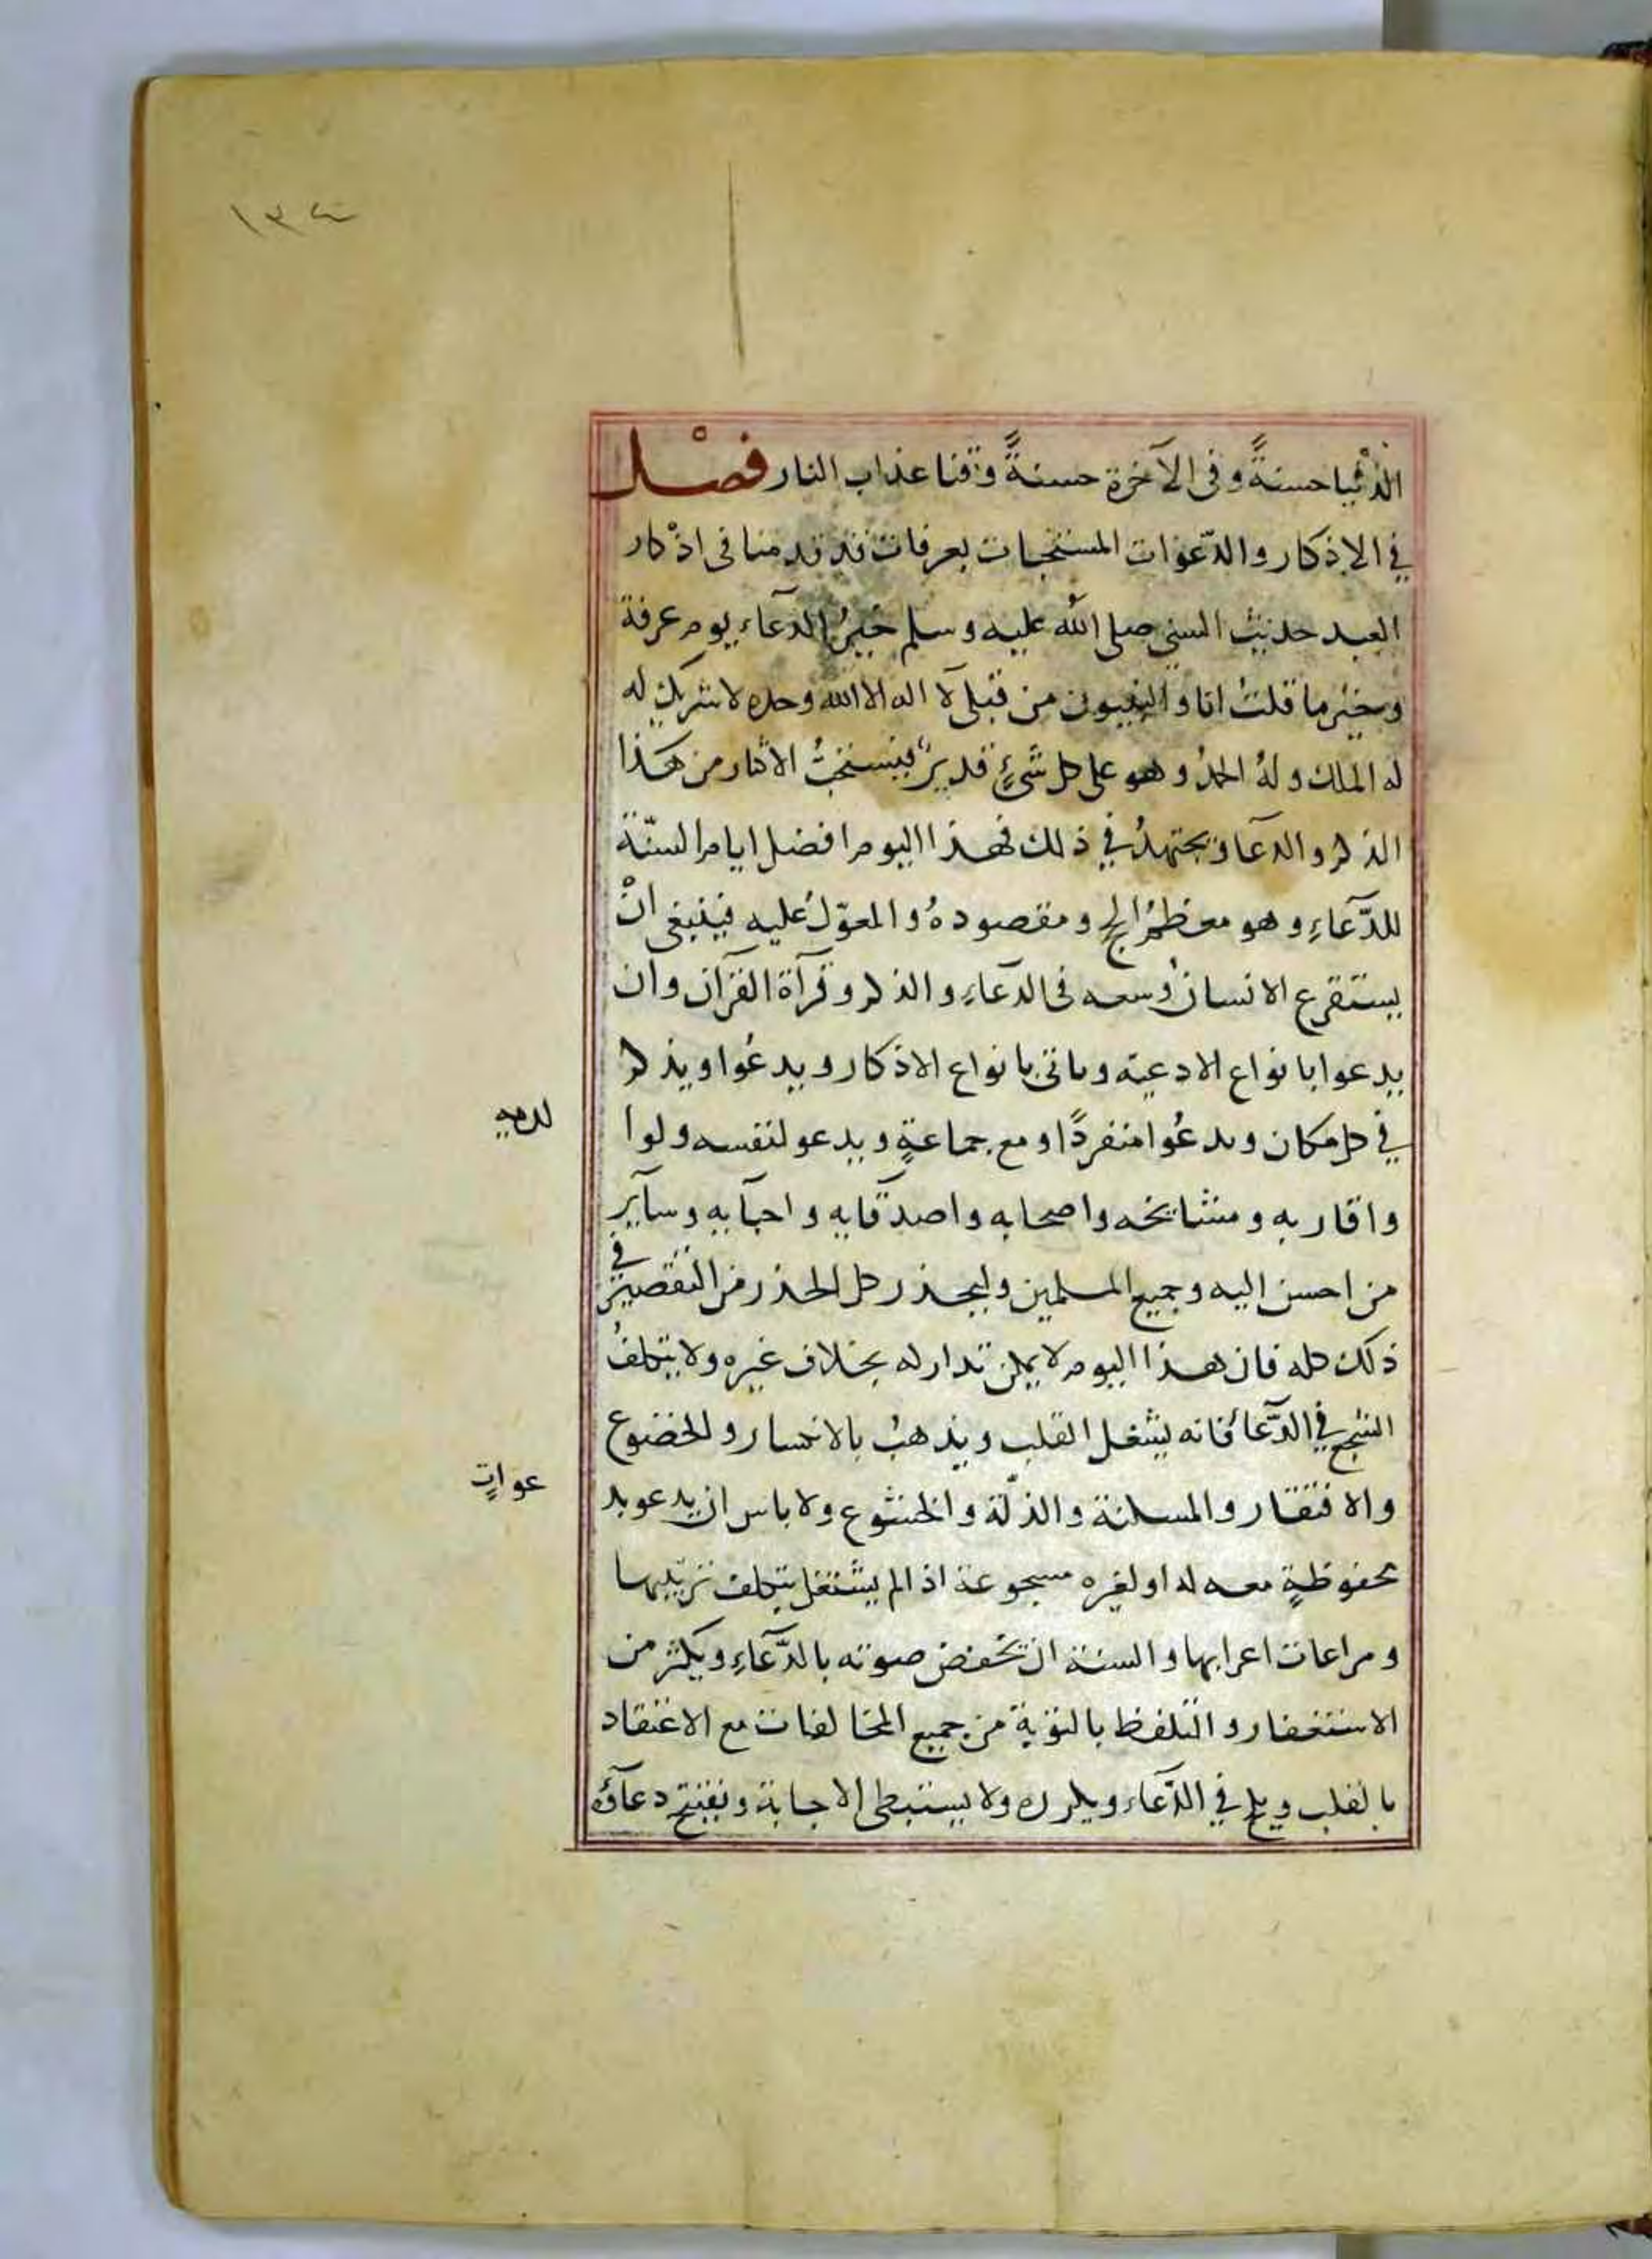 ١٣٤
الدُّنْيا حسنةً وفى الآخرة حسنةً وقنا عذاب النار فصْل
في الاذكار والدّعوات المستحبات بعرفات قد قدمنا فى اذْكار
العيد حديث النبي صلى الله عليه وسلم خيرُ الدعآء يوم عرفة
وخير ما قلتُ انا والنبيون من قبلى لآ اله الا الله وحده لا شريك له
له الملك ولهُ الحمدُ وهو على كل شئٍ قديرٌ فيستحبُّ الاكثار من هَذا
الذكر والدعآ ويجتهدُ في ذلك فهذا اليوم افضل ايام السنّة
للدَّعآءِ وهو معظمُ الحج ومقصودهُ والمعوّلُ عليه فينبغى انْ
يستفرع الانسانُ وُسعه فى الدعآءِ والذكر وقرآة القرآن وان
يدعوا بانواع الادعية وياتى بانواع الاذكار ويدعُوا ويذكر
في كل مكان ويدعُوا منفردًا ومع جماعةٍ ويدعو لنفسه ولوا
لديه
واقاربه ومشايخه واصحابه واصدقايه واحبآبه وسآير
من احسن اليه وجميع المسلمين وليحذر كل الحذر من التقصير في
ذلك كله فان هذا اليوم لا يمكن تداركه بخلاف غيره ولا يتكلفُ
السّجع في الدَّعآء فانه يشغل القلب ويذهبُ بالانكسار والخضوع
والافتقار والمسكنة والذلّة والخشوع ولا باس ان يدعو بد
عواتٍ
محفوظةٍ معه له او لغيره مسجوعة اذا لم يشتغل بتكلف ترتيبها
ومراعات اعرابها والسنة ان يخفض صوته بالدَّعآءِ ويكثر من
الاستغفار والتلفظ بالتوبة من جميع المخالفات مع الاعتقاد
بالقلب ويلح في الدَّعآء ويكرره ولا يستبطى الاجابة ويفتتح دعآؤه